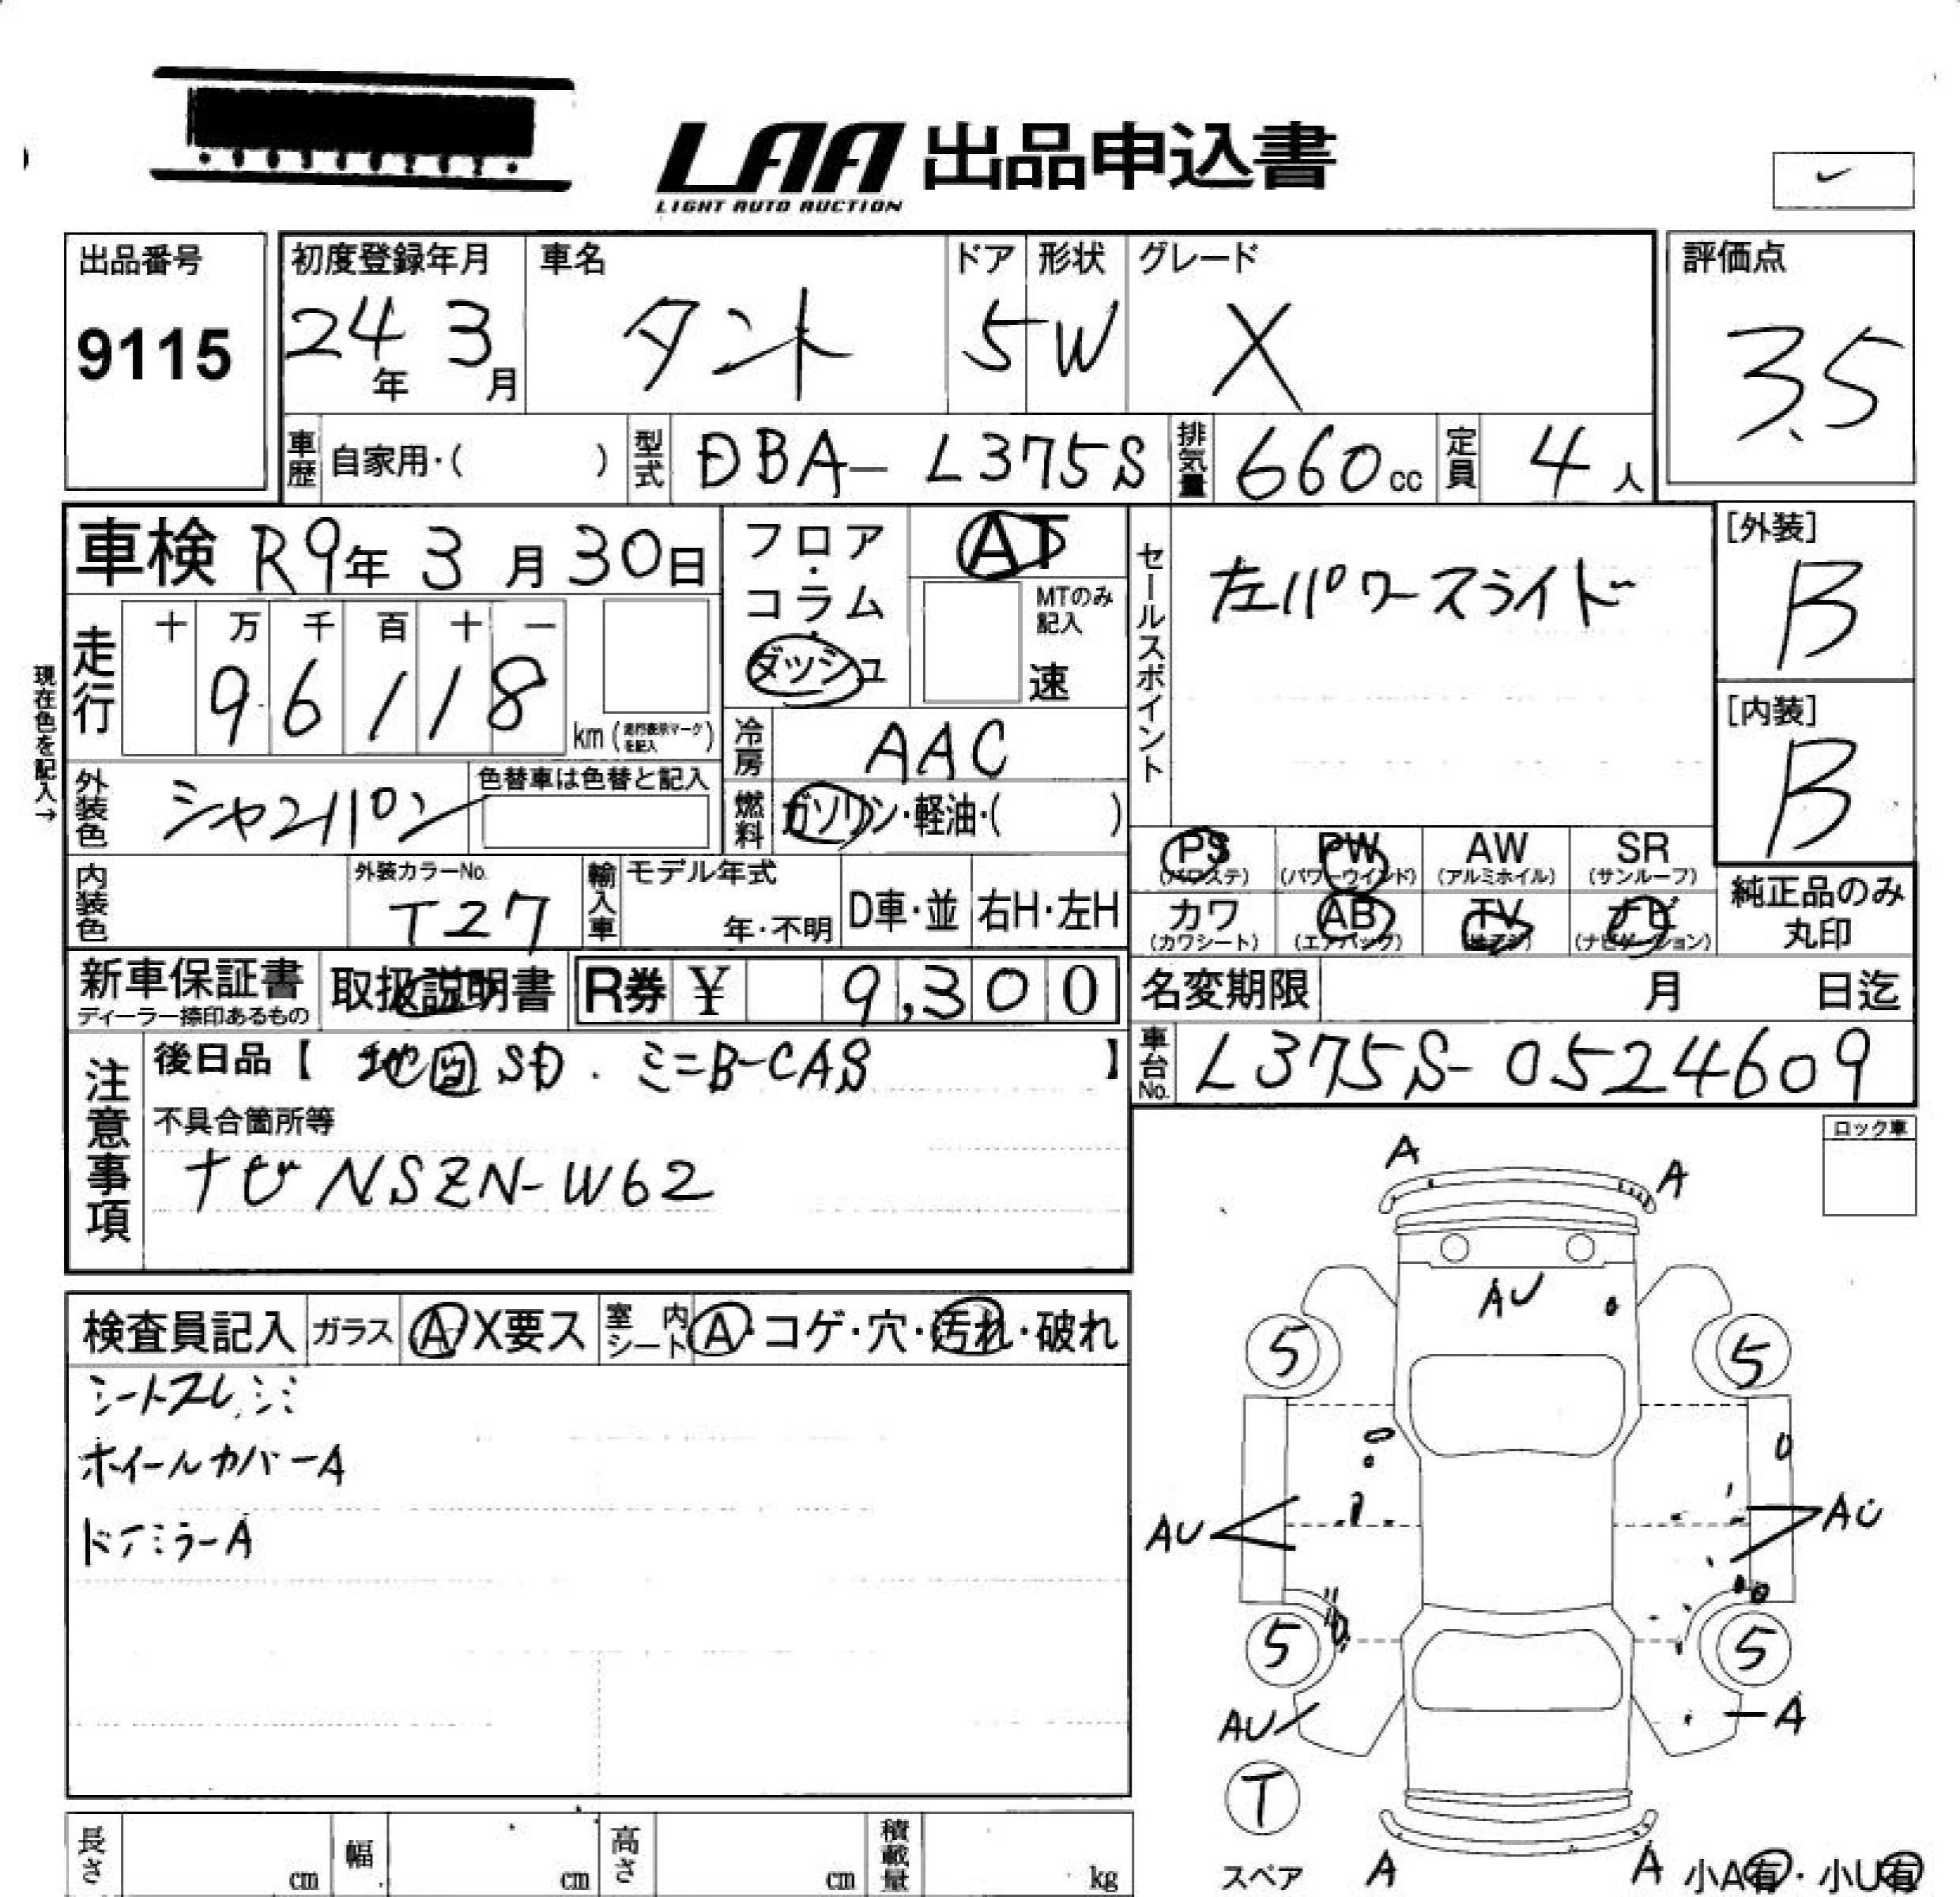 LAA 出品申込書
LIGHT AUTO AUCTION
出品番号
9115
初度登録年月
24年 3月
車名
タント
ドア
5
形状
W
グレード
X
評価点
3.5
車歴 自家用・( )
型式 DBA-L375S
排気量 660cc
定員 4人
車検 R9年 3月 30日
走行
十 万 千 百 十 一
9 6 1 1 8
km (走行表示マークを記入)
現在色を記入→
外装色 シャンパン
色替車は色替と記入
内装色
外装カラーNo.
T27
フロア・コラム・ダッシュ
AT
MTのみ記入
速
冷房 AAC
燃料 ガソリン・軽油・( )
輸入車 モデル年式
年・不明
D車・並
右H・左H
セールスポイント
左パワースライド
[外装]
B
[内装]
B
PS
(パワステ)
PW
(パワーウインド)
AW
(アルミホイル)
SR
(サンルーフ)
カワ
(カワシート)
AB
(エアバッグ)
TV
ナビ
(ナビゲーション)
純正品のみ
丸印
新車保証書
ディーラー捺印あるもの
取扱説明書
R券 ¥ 9,300
名変期限 月 日迄
車台No. L375S-0524609
注意事項
後日品【 地図SD . ミニB-CAS 】
不具合箇所等
ナビ NSZN-W62
ロック車
検査員記入
ガラス A X要ス
室内シート A・コゲ・穴・汚れ・破れ
シートスレ シミ
ホイールカバーA
ドアミラーA
A
A
AU
5
5
AU
AU
5
5
AU
A
T
スペア
A
A
小A有・小U有
長さ cm
幅 cm
高さ cm
積載量 kg